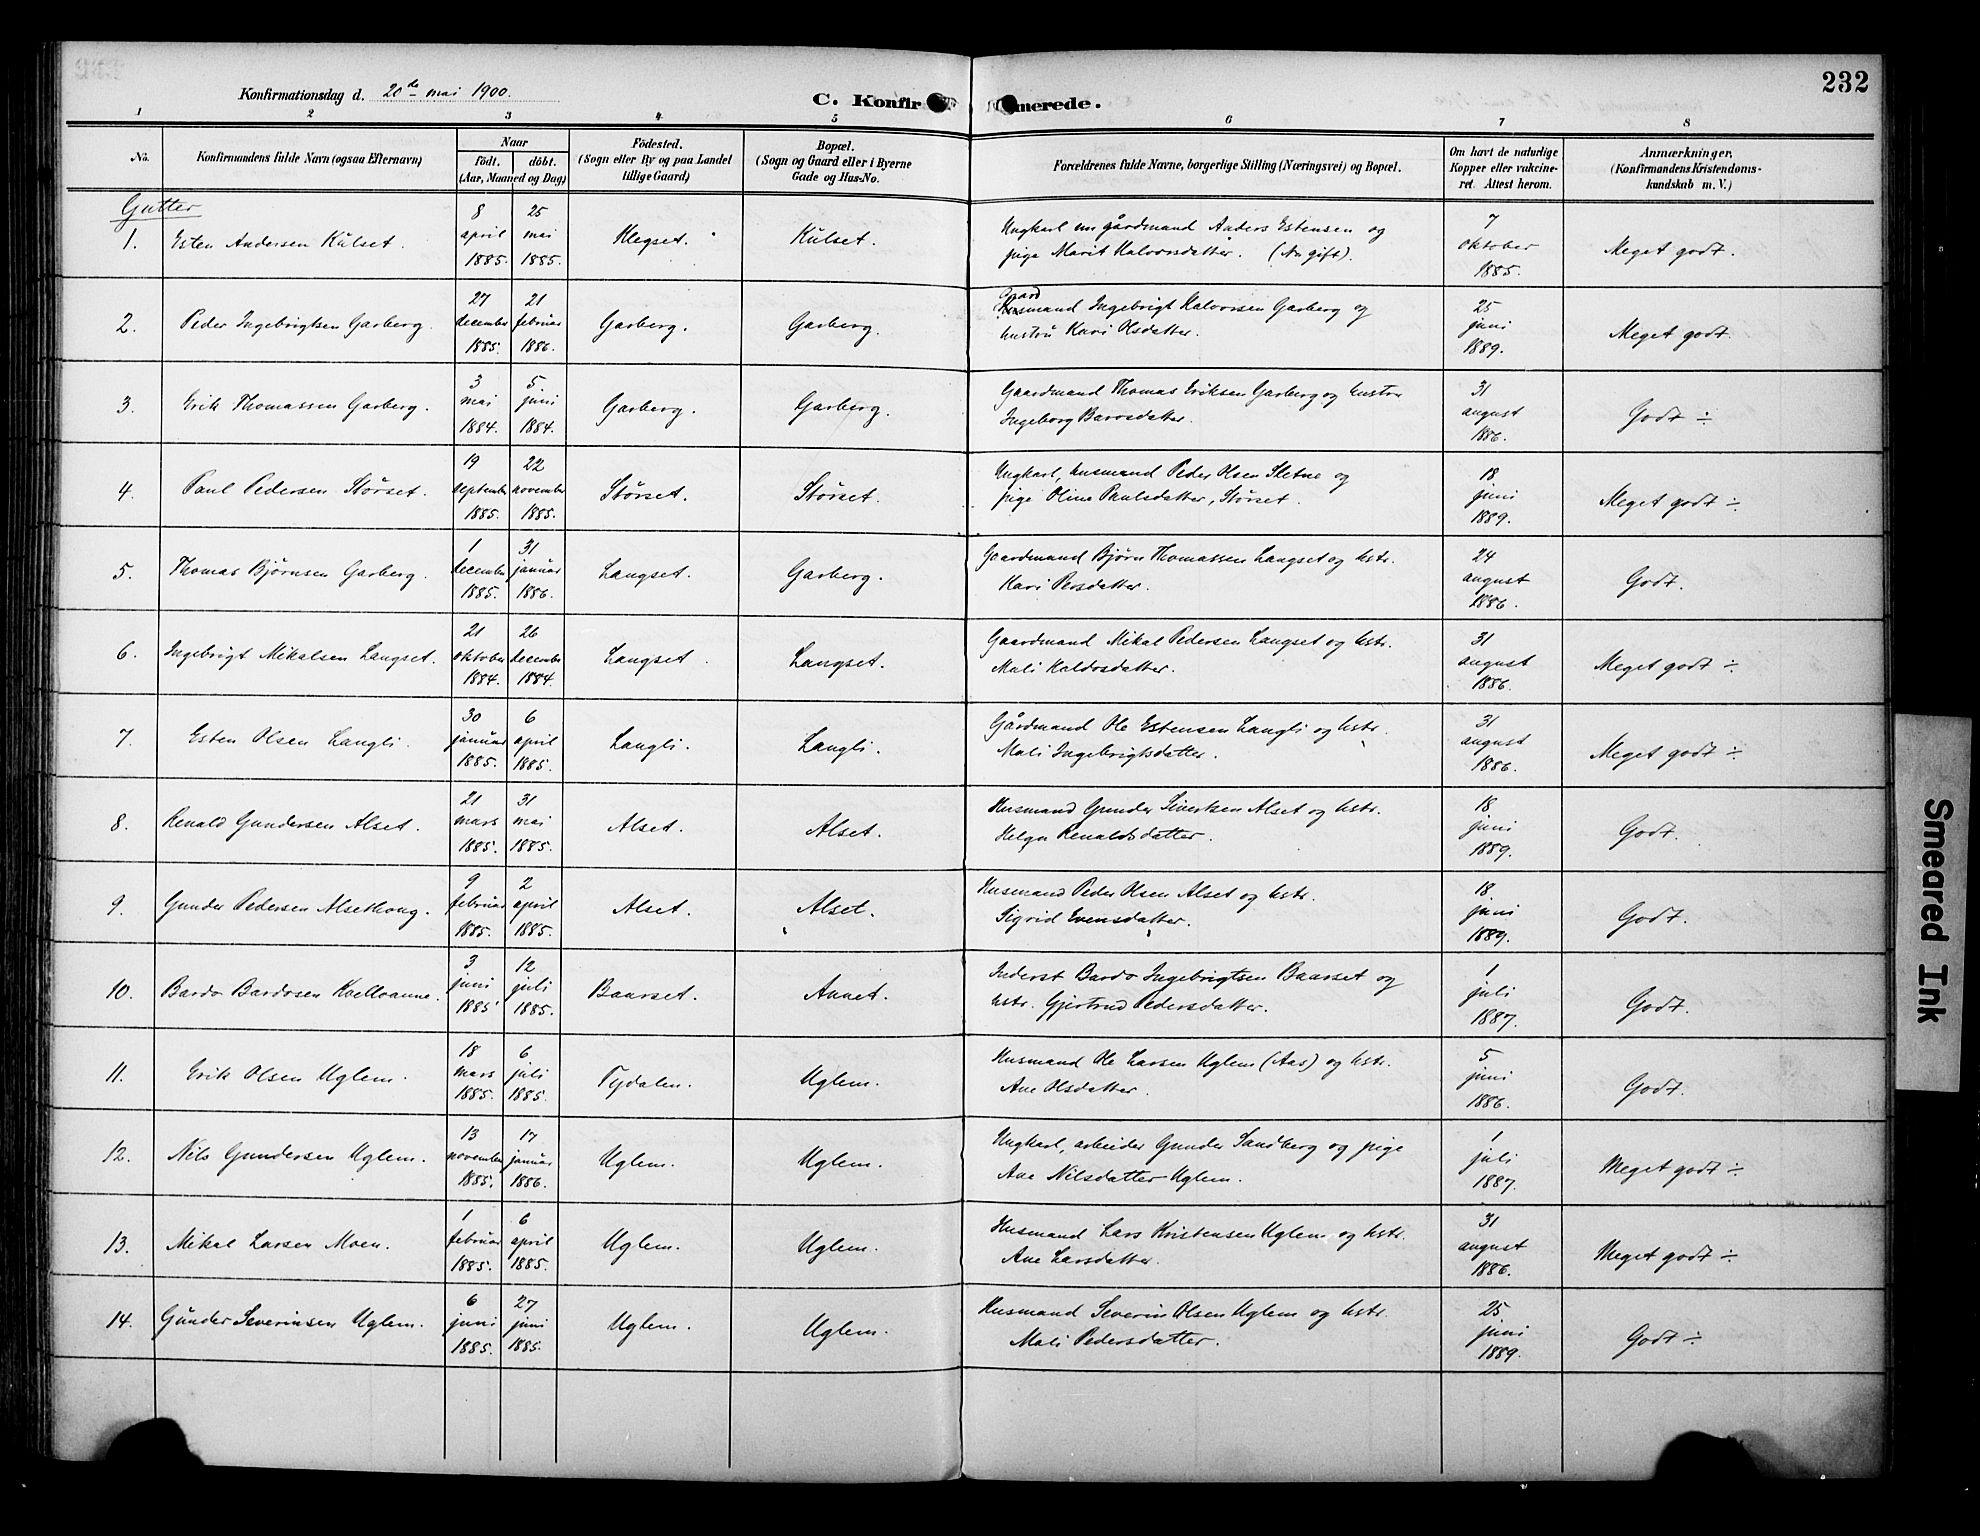 232
Konfirmationsdag d. 20de mai 1900.
C. Konfirmerede.
1 2 3 4 5 6 7 8
No. Konfirmandens fulde Navn (ogsaa Efternavn) Naar födt. döbt. (Aar, Maaned og Dag) Födested. (Sogn eller By og paa Landet tillige Gaard) Bopæl. (Sogn og Gaard eller i Byerne Gade og Hus-No. Forældrenes fulde Navne, borgerlige Stilling (Næringsvei) og Bopæl. Om havt de naturlige Kopper eller vakcineret. Attest herom. Anmærkninger. (Konfirmandens Kristendomskundskab m. V.)
Gutter
1. Esten Andersen Kulset. 8 april 1885. 25 mai 1885. Klegset. Kulset. Ungkarl nu gårdmand Anders Estensen og
pige Marit Halvorsdatter. (Nu gift). 7 oktober 1885. Meget godt.
2. Peder Ingebrigtsen Garberg. 27 december 1885. 21 februar 1886. Garberg. Garberg. Gaardmand Ingebrigt Halvorsen Garberg og
hustru Kari Olsdatter. 25 juni 1889. Meget godt.
3. Erik Thomassen Garberg. 3 mai 1884. 5. juni 1884. Garberg. Garberg. Gaardmand Thomas Eriksen Garberg og hustru
Ingeborg Barosdatter. 31 august 1886. Godt ÷
4. Paul Pedersen Størset. 19 september 1885. 22 november 1885. Størset. Størset. Ungkarl, husmand Peder Olsen Sletne og
pige Oline Paulsdatter, Størset. 18 juni 1889. Meget godt ÷
5. Thomas Bjørnsen Garberg. 1 december 1885. 31 januar 1886. Langset. Garberg. Gaardmand Bjørn Thomassen Langset og hstr.
Kari Persdatter. 24 august 1886. Godt.
6. Ingebrigt Mikalsen Langset. 21 oktober 1884. 26 december 1884. Langset. Langset. Gaardmand Mikal Pedersen Langset og hstr.
Mali Haldosdatter. 31 august 1886. Meget godt ÷
7. Esten Olsen Langli. 30 januar 1885. 6 april 1885. Langli. Langli. Gårdmand Ole Estensen Langli og hstr.
Mali Ingebrigtsdatter. 31 august 1886. Meget godt ÷
8. Renald Gundersen Alset. 21 mars 1885. 31 mai 1885. Alset. Alset. Husmand Gunder Sivertsen Alset og hstr.
Helga Renaldsdatter. 18 juni 1889. Godt.
9. Gunder Pedersen Alsethoug. 9 februar 1885. 2 april 1885. Alset. Alset. Husmand Peder Olsen Alset og hstr.
Sigrid Evensdatter. 18 juni 1889. Godt.
10. Bardo Bardosen 3 juni 1885 12 juli 1885. Baarset. Aunet. Inderst Bardo Ingebrigtsen Baarset og
hstr. Gjertrud Pedersdatter. 1 juli 1887. Godt.
11. Erik Olsen Uglem. 18 mars 1885. 6 juli 1885. Tydalen. Uglem. Husmand Ole Larsen Uglem (Aas) og hstr.
Ane Olsdatter. 5 juni 1886. Godt.
12. Nils Gundersen Uglem. 13 november 1885. 17 januar 1886. Uglem. Uglem. Ungkarl, arbeider Gunder Sandberg og pige
Ane Nilsdatter Uglem. 1 juli 1887. Meget godt ÷
13. Mikal Larsen Moen. 1 februar 1885. 6 april 1885. Uglem. Uglem. Husmand Lars Kristensen Uglem og hstr.
Ane Larsdatter. 31 august 1886. Meget godt ÷
14. Gunder Severinsen Uglem. 6 juni 1885. 27 juni 1885. Uglem. Uglem. Husmand Severin Olsen Uglem og hstr.
Mali Pedersdatter. 25 juni 1889. Godt ÷
Smeared Ink